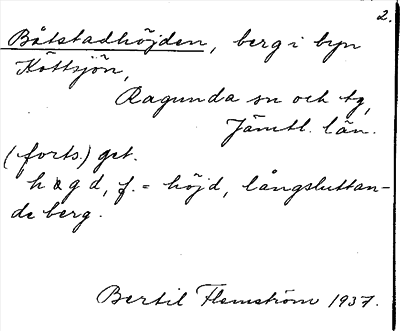 2.
Båtstadhöjden, berg i byn
Köttsjön,
Ragunda sn och tg,
Jämtl. län.
(forts.) get.
högd, f. = höjd, långsluttan-
de berg.
Bertil Flemström 1937.